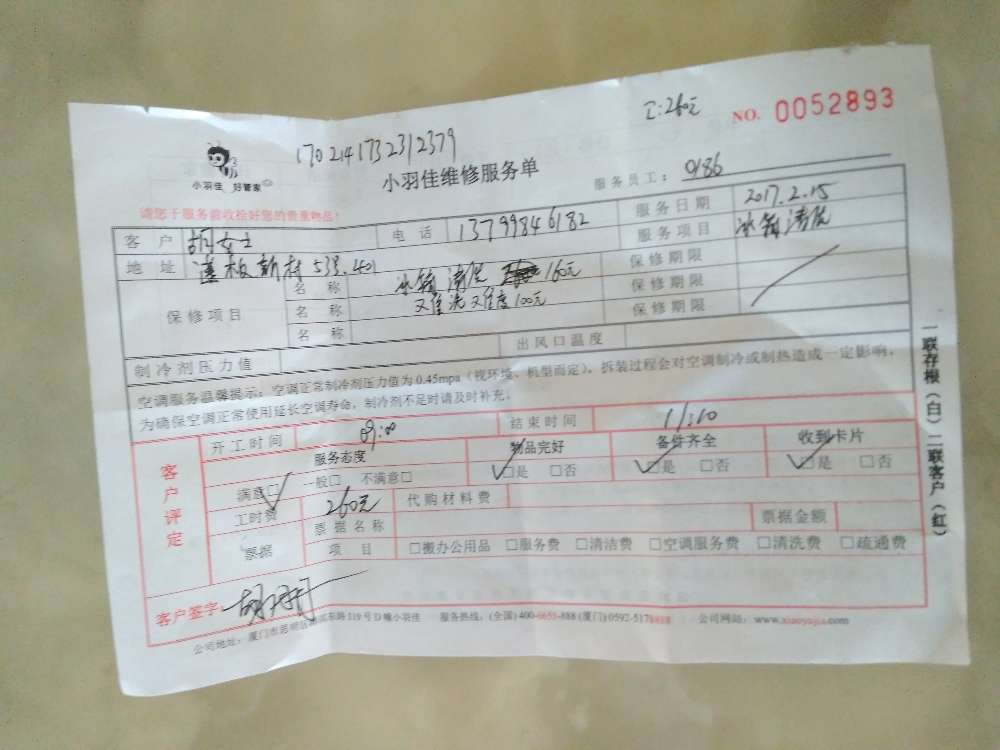 工:260元 NO. 0052893
1702141732312379
小羽佳 好管家
小羽佳维修服务单
服务员工: 9186
请您于服务前收捡好您的贵重物品!
客户 胡女士 电话 13799846182 服务日期 2017.2.15
地址 莲板新村538.401 服务项目 冰箱清洗
保修项目
名称 冰箱清洗 160元 保修期限
名称 100元 保修期限
名称 保修期限
制冷剂压力值 出风口温度
空调服务温馨提示:空调正常制冷剂压力值为0.45mpa(视环境、机型而定),拆装过程会对空调制冷或制热造成一定影响,
为确保空调正常使用延长空调寿命,制冷剂不足时请及时补充。
客户评定
开工时间 09:00 结束时间 11:10
服务态度 物品完好 备件齐全 收到卡片
满意□ 一般□ 不满意□ □是 □否 □是 □否 □是 □否
工时费 260元 代购材料费
票据 票据名称 票据金额
项目 □搬办公用品 □服务费 □清洁费 □空调服务费 □清洗费 □疏通费
客户签字:
公司地址:厦门市思明区 东路319号D幢小羽佳 服务热线:(全国)400-6655-888 (厦门)0592-5178888 公司网站:www.xiaoyujia.com
一联存根(白)二联客户(红)